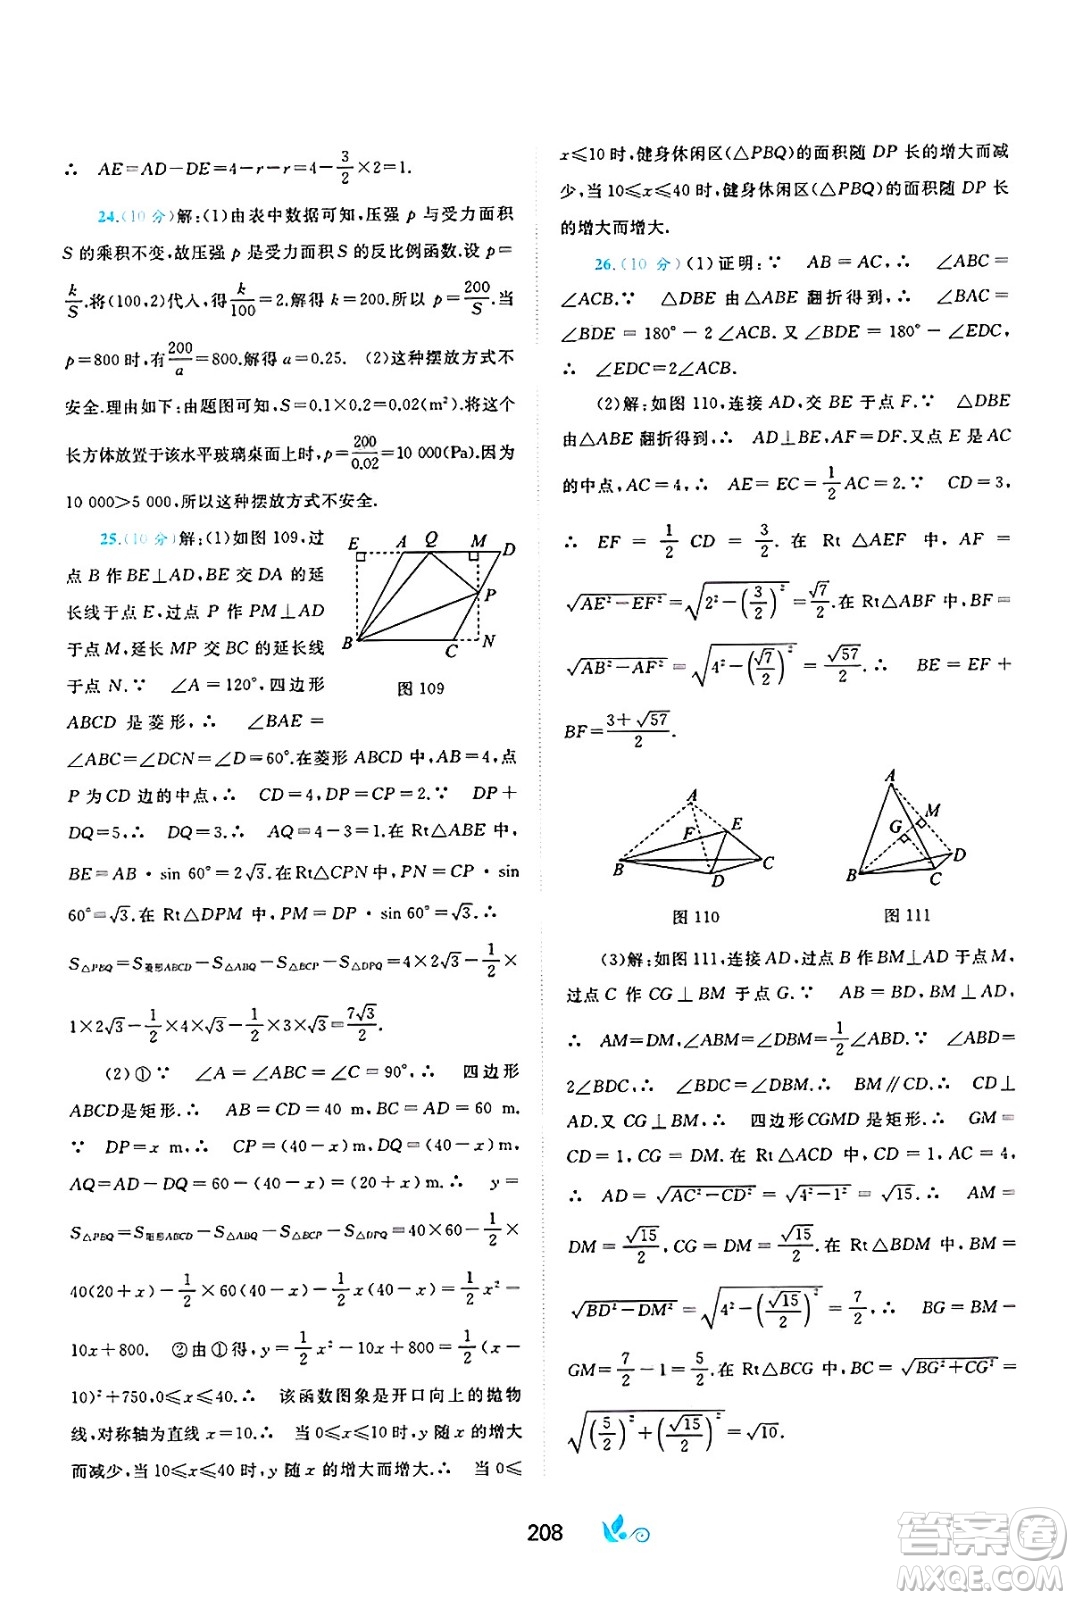 ∴ AE=AD−DE=4−r−r=4−3/2×2=1.
24.(10分)解:(1)由表中数据可知,压强 p 与受力面积
S 的乘积不变,故压强 p 是受力面积 S 的反比例函数.设 p=
k/S.将(100,2)代入,得k/100=2.解得 k=200.所以 p=200/S.当
p=800 时,有200/a=800.解得 a=0.25. (2)这种摆放方式不
安全.理由如下:由题图可知,S=0.1×0.2=0.02(m²).将这个
长方体放置于该水平玻璃桌面上时,p=200/0.02=10 000(Pa).因为
10 000>5 000,所以这种摆放方式不安全.
25.(10分)解:(1)如图 109,过
点 B 作 BE⊥AD,BE 交 DA 的延
长线于点 E,过点 P 作 PM⊥AD
于点 M,延长 MP 交 BC 的延长线
于点 N.∵ ∠A=120°,四边形
ABCD 是菱形,∴ ∠BAE=
∠ABC=∠DCN=∠D=60°.在菱形 ABCD 中,AB=4,点
P 为 CD 边的中点,∴ CD=4,DP=CP=2.∵ DP+
DQ=5,∴ DQ=3.∴ AQ=4−3=1.在 Rt△ABE 中,
BE=AB·sin 60°=2√3.在 Rt△CPN 中,PN=CP·sin
60°=√3.在 Rt△DPM 中,PM=DP·sin 60°=√3.∴
S△PBQ=S菱形ABCD−S△ABQ−S△BCP−S△DPQ=4×2√3−1/2×
1×2√3−1/2×4×√3−1/2×3×√3=7√3/2.
(2)①∵ ∠A=∠ABC=∠C=90°,∴ 四边形
ABCD是矩形.∴ AB=CD=40 m,BC=AD=60 m.
∵ DP=x m,∴ CP=(40−x)m,DQ=(40−x)m.
AQ=AD−DQ=60−(40−x)=(20+x)m.∴ y=
S△PBQ=S矩形ABCD−S△ABQ−S△BCP−S△DPQ=40×60−1/2×
40(20+x)−1/2×60(40−x)−1/2x(40−x)=1/2x²−
10x+800. ②由①得,y=1/2x²−10x+800=1/2(x−
10)²+750,0≤x≤40.∴ 该函数图象是开口向上的抛物
线,对称轴为直线 x=10.∴ 当 0≤x≤10 时,y 随 x 的增大
而减少,当 10≤x≤40 时,y 随 x 的增大而增大.∴ 当 0≤
E A Q M D P B C N
图 109
x≤10 时,健身休闲区(△PBQ)的面积随 DP 长的增大而减
少,当 10≤x≤40 时,健身休闲区(△PBQ)的面积随 DP 长
的增大而增大.
26.(10分)(1)证明:∵ AB=AC,∴ ∠ABC=
∠ACB.∵ △DBE 由△ABE 翻折得到,∴ ∠BAC=
∠BDE=180°−2∠ACB.又∠BDE=180°−∠EDC,
∴ ∠EDC=2∠ACB.
(2)解:如图 110,连接 AD,交 BE 于点 F.∵ △DBE
由△ABE 翻折得到,∴ AD⊥BE,AF=DF.又点 E 是 AC
的中点,AC=4,∴ AE=EC=1/2AC=2.∵ CD=3,
∴ EF=1/2CD=3/2.在 Rt△AEF 中,AF=
√(AE²−EF²)=√(2²−(3/2)²)=√7/2.在 Rt△ABF 中,BF=
√(AB²−AF²)=√(4²−(√7/2)²)=√57/2.∴ BE=EF+
BF=(3+√57)/2.
A E F B C D
图 110
A M G D B C
图 111
(3)解:如图 111,连接 AD,过点 B 作 BM⊥AD 于点 M,
过点 C 作 CG⊥BM 于点 G.∵ AB=BD,BM⊥AD,
∴ AM=DM,∠ABM=∠DBM=1/2∠ABD.∵ ∠ABD=
2∠BDC,∴ ∠BDC=∠DBM.∴ BM∥CD.∴ CD⊥
AD.又 CG⊥BM,∴ 四边形CGMD 是矩形.∴ GM=
CD=1,CG=DM.在 Rt△ACD 中,CD=1,AC=4,
∴ AD=√(AC²−CD²)=√(4²−1²)=√15.∴ AM=
DM=√15/2,CG=DM=√15/2.在 Rt△BDM 中,BM=
√(BD²−DM²)=√(4²−(√15/2)²)=7/2.∴ BG=BM−
GM=7/2−1=5/2.在 Rt△BCG 中,BC=√(BG²+CG²)=
√((5/2)²+(√15/2)²)=√10.
208
答案卷
MXQE.COM